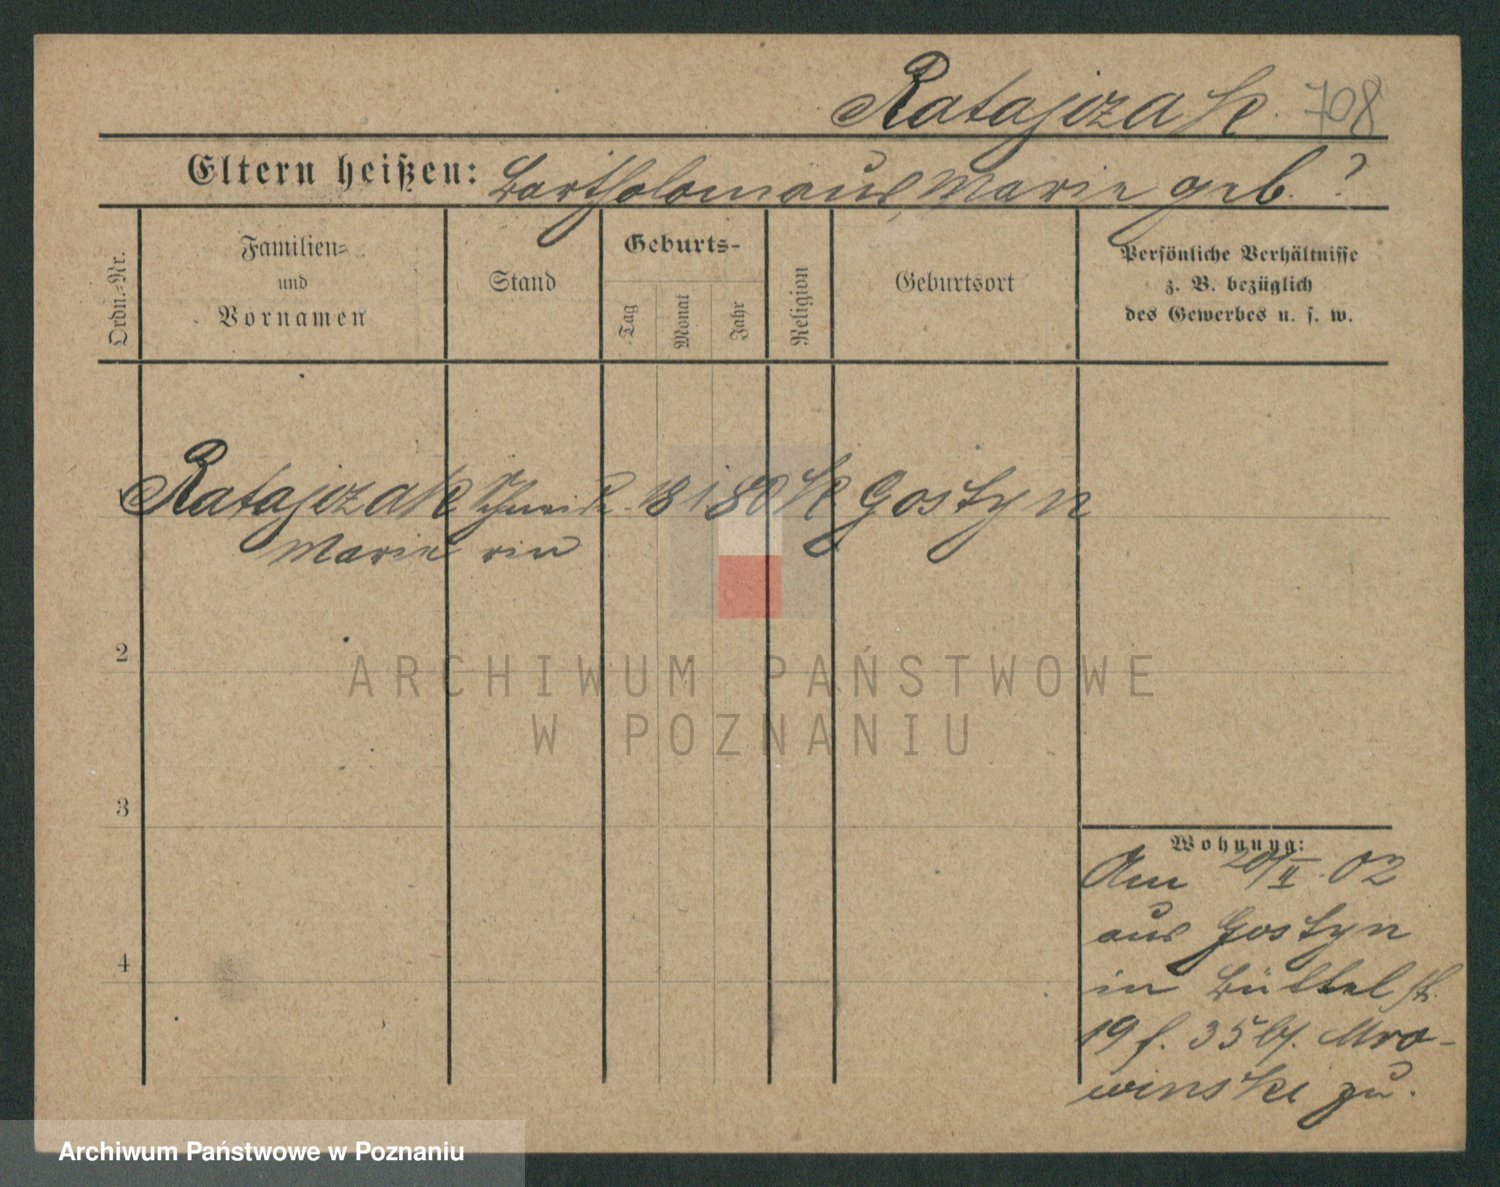 Ratajczak. 708
Eltern heißen: Bartholomäus, Marie geb. ?
Ordn.-Nr.
Familien-
und
Vornamen
Stand
Geburts-
Tag
Monat
Jahr
Religion
Geburtsort
Persönliche Verhältnisse
z. B. bezüglich
des Gewerbes u. s. w.
Ratajczak Schneide- 18 1 80 K. Gostyn
Marie rin
2
3
4
Wohnung:
Am 20/II. 02
aus Gostyn
in Büttelstr.
19 f. 35 bj. Mro-
winski zu.
ARCHIWUM PAŃSTWOWE
W POZNANIU
Archiwum Państwowe w Poznaniu